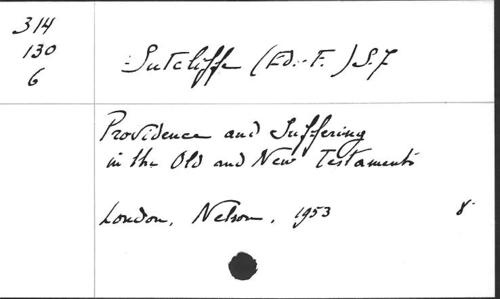 314
130
6
Sutcliffe (Ed. F.) S.J
Providence and Suffering
in the Old and New Testaments
London, Nelson, 1953 8°